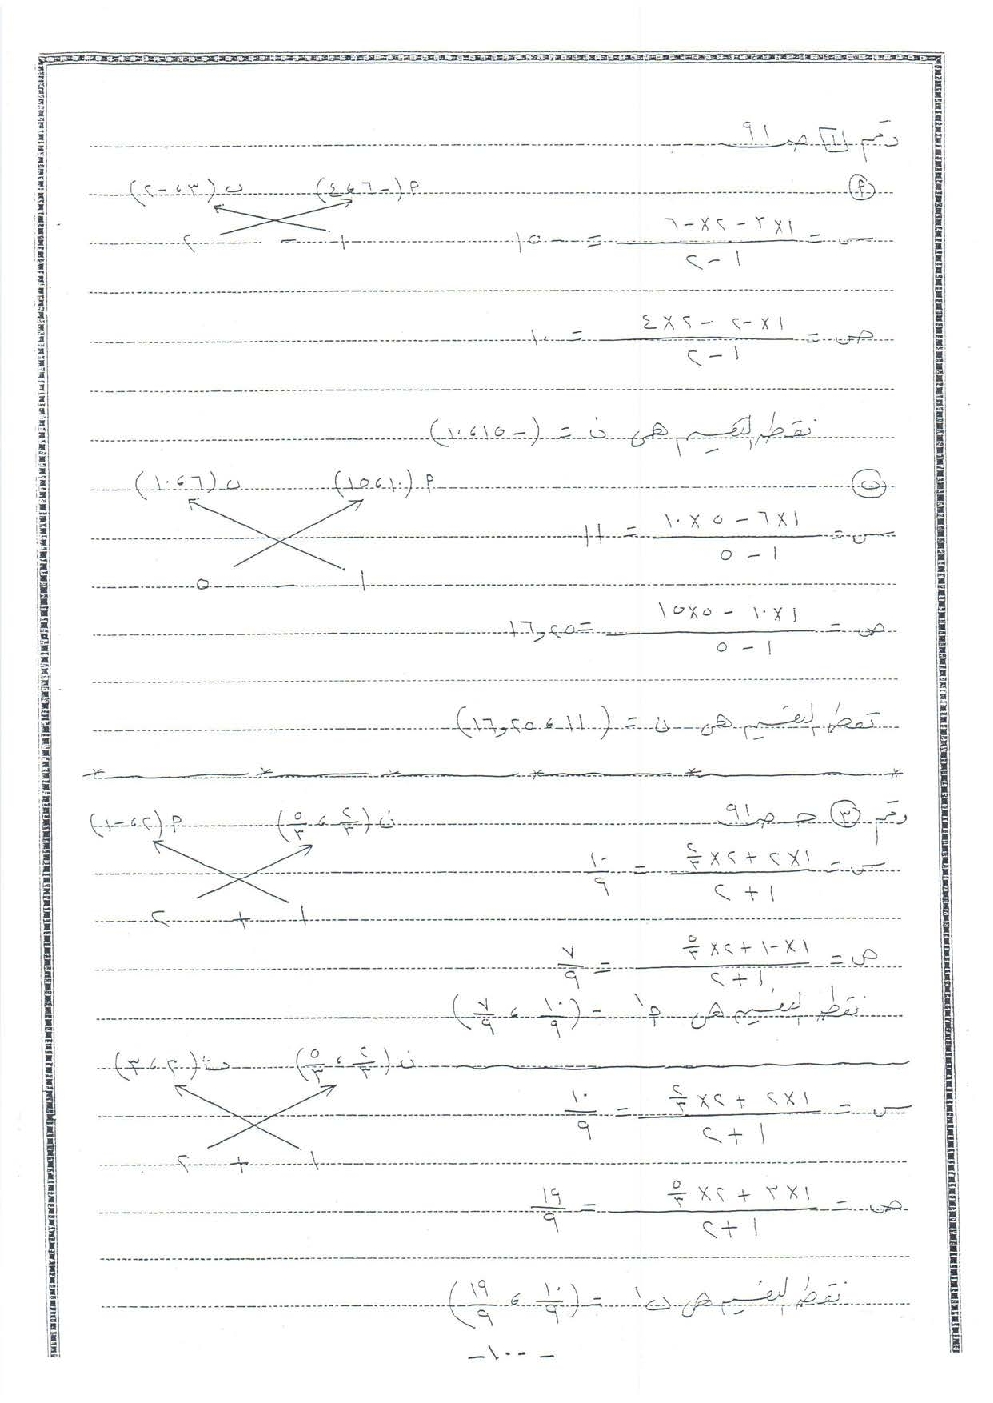 رقم [١١] ص ٩١
(٢) م(-٦ ، ٤) ن(٣ ، -٢)
١ - ٢
س = (١×٣ - ٢×-٦)/(١ - ٢) = -١٥
ص = (١×-٢ - ٢×٤)/(١ - ٢) = ١٠
نقطة التقسيم هى ن = (-١٥ ، ١٠)
(ب) م(١٠ ، ١٥) ن(٦ ، ١٠)
١ - ٥
س = (١×٦ - ٥×١٠)/(١ - ٥) = ١١
ص = (١×١٠ - ٥×١٥)/(١ - ٥) = ١٦,٢٥
نقطة التقسيم هى ن = (١١ ، ١٦,٢٥)
رقم (٣) حـ ص ٩١ ن(٢/٣ ، ٥/٣) م(٢ ، -١)
١ + ٢
س = (١×٢ + ٢×٢/٣)/(١ + ٢) = ١٠/٩
ص = (١×-١ + ٢×٥/٣)/(١ + ٢) = ٧/٩
نقطة التقسيم هى م١ = (١٠/٩ ، ٧/٩)
ن(٢/٣ ، ٥/٣) ب(٢ ، ٣)
١ + ٢
س = (١×٢ + ٢×٢/٣)/(١ + ٢) = ١٠/٩
ص = (١×٣ + ٢×٥/٣)/(١ + ٢) = ١٩/٩
نقطة التقسيم هى ن١ = (١٠/٩ ، ١٩/٩)
- ١٠٠ -